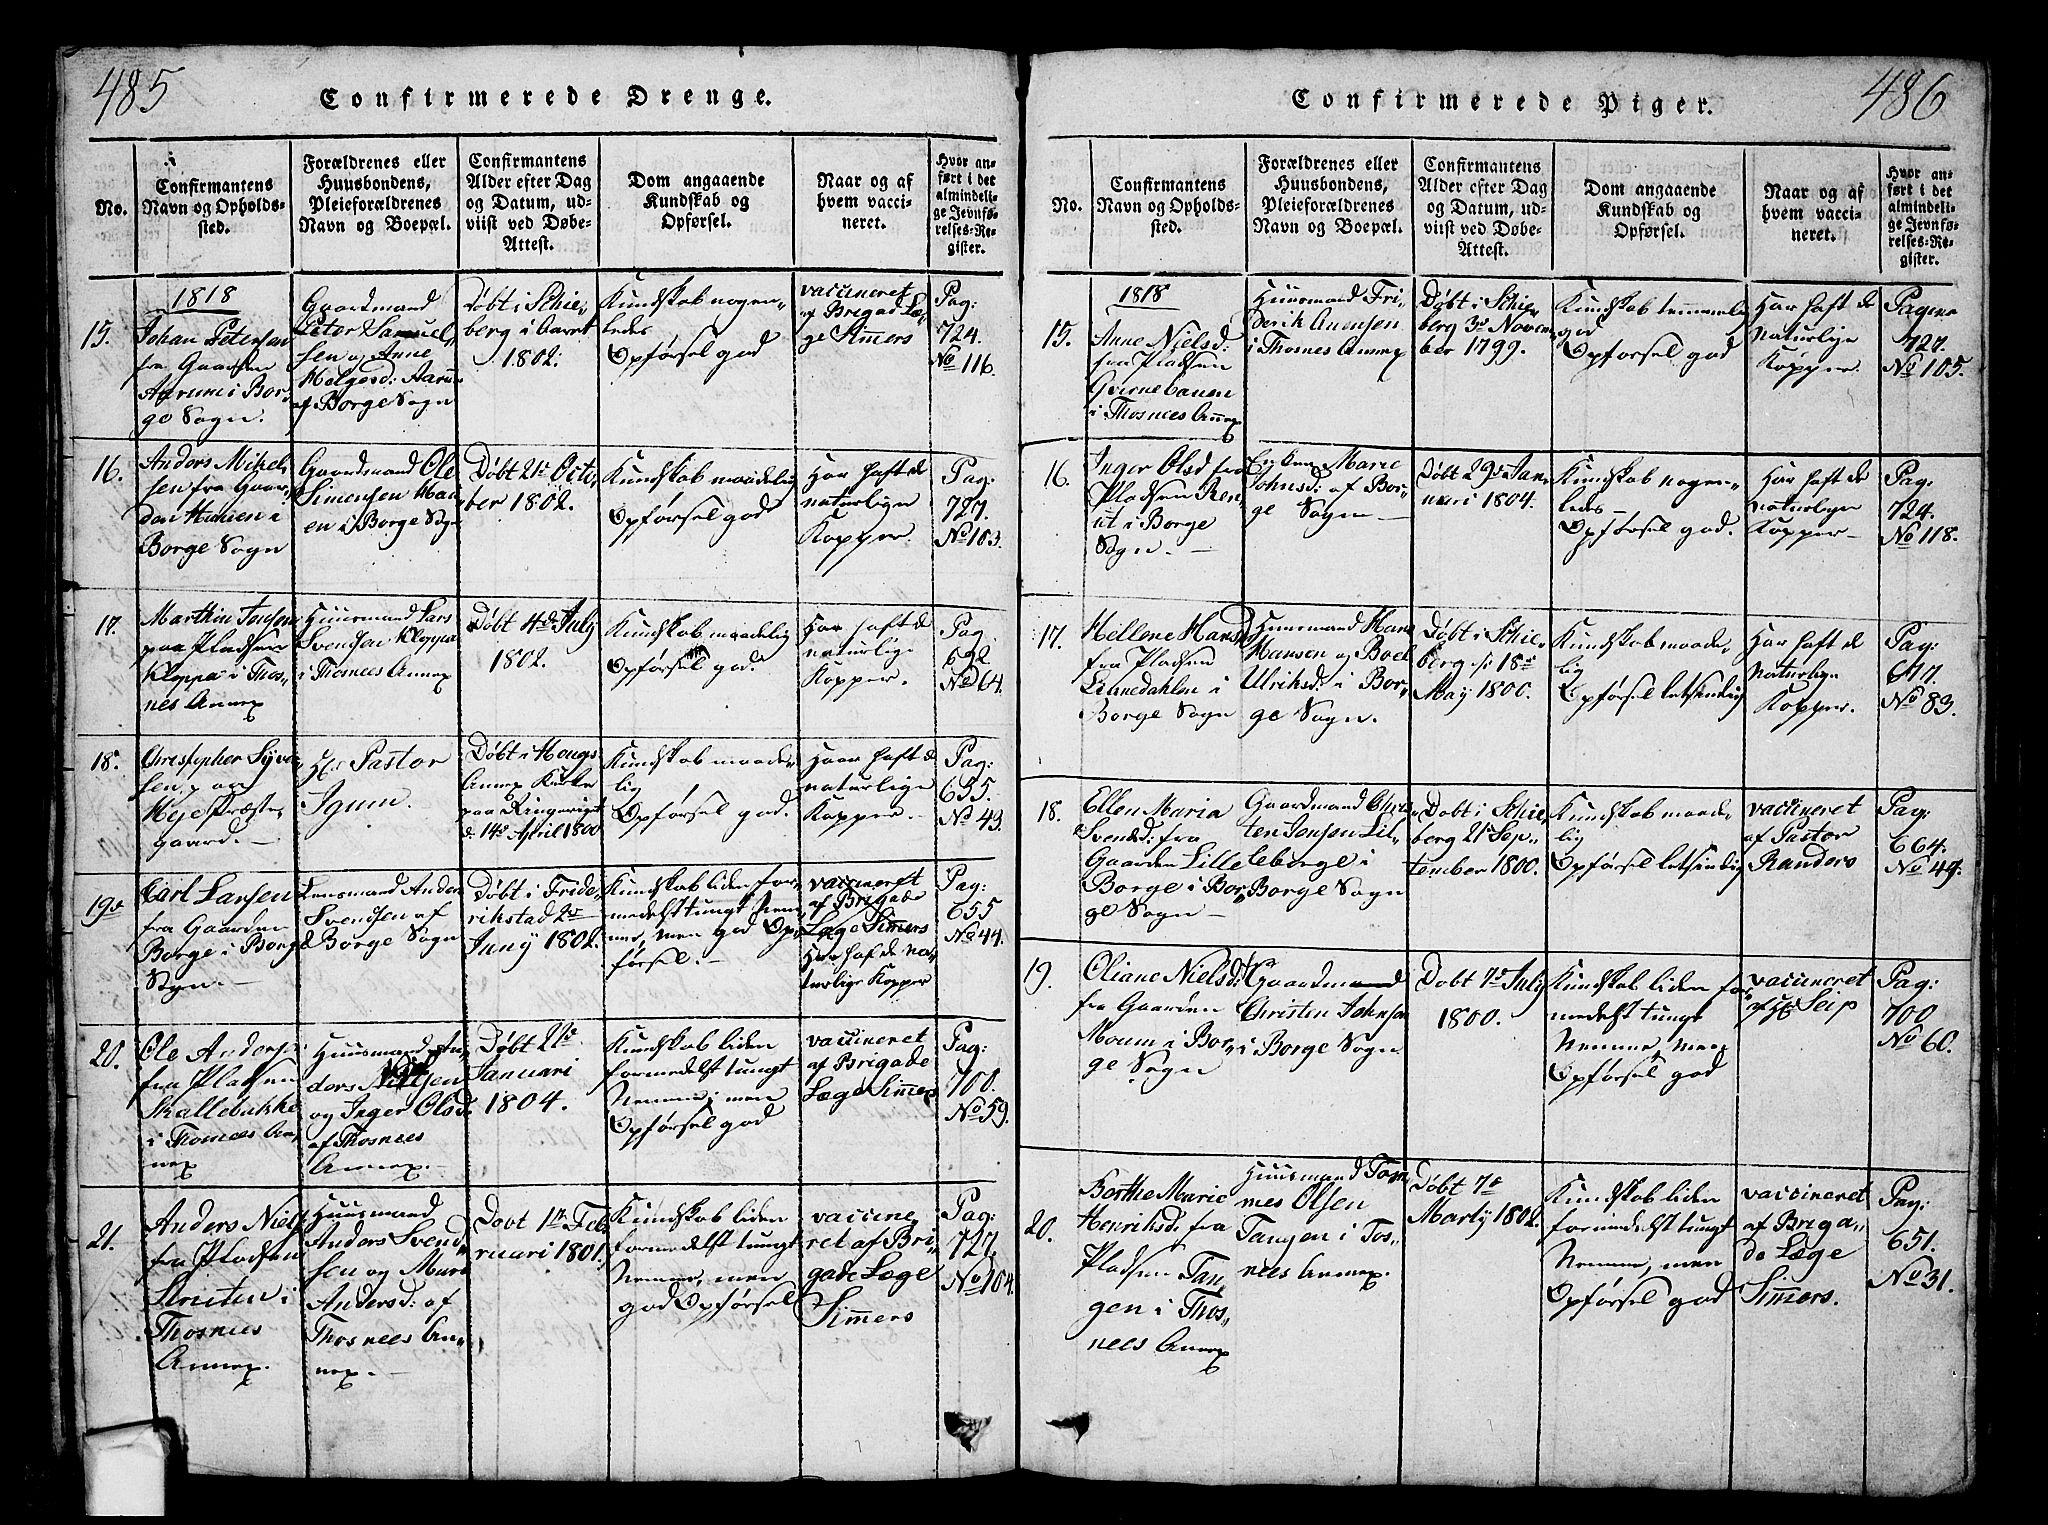 485
Confirmerede Drenge.
No.
Confirmantens
Navn og Opholds-
sted.
Forældrenes eller
Huusbondens,
Pleieforældrenes
Navn og Boepæl.
Confirmantens
Alder efter Dag
og Datum, ud-
viist ved Døbe-
Attest.
Dom angaaende
Kundskab og
Opførsel.
Naar og af
hvem vacci-
neret.
Hvor an-
ført i det
almindeli-
ge Jevnfø-
relses-Re-
gister.
1818
15.
Johan Petersen
fra Gaarden
Aarum i Bor-
ge Sogn.
Gaardmand
Peter Samuel-
sen og Anne
Helgesd: Aarum
af Borge Sogn
Døbt i Schie-
berg i Aaret
1802.
Kundskab nogen-
ledes
Opførsel god
vaccineret
af Brigade Læ-
ge Simers
Pag:
724.
No 116.
16.
Anders Mikel-
sen fra Gaar-
den i
Borge Sogn
Gaardmand Ole
Simensen
i Borge Sogn
Døbt 21de Octo-
ber 1802.
Kundskab maadelig
Opførsel god
Har haft de
naturlige
Kopper.
Pag:
727.
No 103.
17.
Marthin Jensen
paa Pladsen
Kloppa i Thos-
nes Annex
Huusmand Lars
Svendsen Kloppa
i Thosnees Annex
Døbt 4de July
1802.
Kundskab maadelig
Opførsel god.
Har haft de
naturlige
Kopper.
Pag
692
No 64.
18.
Christopher Syver-
sen paa
Præste-
gaard.
Hr Pastor
Igum.
Døbt i Hougs
Annex Kirke
paa Ringeriget
d: 14de April 1800
Kundskab maade-
lig
Opførsel god.
Haar haft de
naturlige
Kopper.
Pag:
655.
No 43.
19de
Carl Larsen
fra Gaarden
Borge i Borge
Sogn.
Lensmand Anders
Svendsen af
Borge Sogn
Døbt i Fride-
rikstad 2de
Juny 1802.
Kundskab liden for-
medelst tungt Nem-
me, men god Op-
førsel.
vaccineret
af Brigade
Læge Simers
Har haft de na-
turlige Kopper
Pag:
655
No 44.
20.
Ole Anders:
fra Pladsen
Skallebakke
i Thosnees An-
nex
Huusmand An-
ders Nielsen
og Inger Olsd.
af Thosnees
Annex.
Døbt 21de
Januari
1804.
Kundskab liden
formedelst tungt
Nemme, men
Opførsel god
vaccineret
af Brigade
Læge Simers
Pag:
700.
No 59.
21.
Anders Niels
fra Pladsen
i
Thosnees
Annex.
Huusmand
Anders Svend-
sen og Mari
Andersd: af
Thosnees An-
nex.
Døbt 1te Feb-
ruari 1801.
Kundskab liden
formedelst tungt
Nemme, men
god Opførsel
vaccine-
ret af Bri-
gade Læge
Simers
Pag:
727.
No 104.
486
Confirmerede Piger.
No.
Confirmantens
Navn og Opholds-
sted.
Forældrenes eller
Huusbondens,
Pleieforældrenes
Navn og Boepæl.
Confirmantens
Alder efter Dag
og Datum, ud-
viist ved Døbe-
Attest.
Dom angaaende
Kundskab og
Opførsel.
Naar og af
hvem vacci-
neret.
Hvor an-
ført i det
almindeli-
ge Jevnfø-
relses-Re-
gister.
1818
15.
Anne Nielsd:
fra Pladsen
i Thosnees Annex
Huusmand Fri-
derik Anensen
i Thosnes Annex
Døbt i Schie-
berg 3de Novem-
ber 1799.
Kundskab temmelig
god
Opførsel god
Har haft de
naturlige
Kopper.
Pagina
727.
No 105.
16.
Inger Olsd fra
Pladsen
i Borge
Sogn.
Enken Marie
Johnsd: af Bor-
ge Sogn
Døbt 29de Jan-
uari 1804.
Kundskab nogen-
ledes
Opførsel god.
Har haft de
naturlige
Kopper
Pag:
724.
No 118.
17.
Hellene Hansd
fra Pladsen
Linnedahlen i
Borge Sogn
Huusmand Hans
Hansen og Boel
Ulriksd: i Bor-
ge Sogn.
Døbt i Schie-
berg 18de
May 1800.
Kundskab maade-
lig
Opførsel letsindig
Har haft de
Naturlige
Kopper.
Pag:
No 83.
18.
Ellen Maria
Svendsd: fra
Gaarden Lille
Borge i Bor-
ge Sogn
Gaardmand Chris-
ten Jensen Lil-
leborge i
Borge Sogn
Døbt i Schie-
berg 21de Sep-
tember 1800.
Kundskab maade-
lig
Opførsel letsindig
vaccineret
af Pastor
Randers
Pag:
664.
No 49.
19.
Oliane Nielsd:
fra Gaarden
Moum i Bor-
ge Sogn
Gaardmand
Christen Johnsen
i Borge Sogn
Døbt 7de July
1800.
Kundskab liden for-
medelst tungt
Nemme, men
Opførsel god
vaccineret
af Hr Seip
Pag:
700
No 60.
20.
Berthe Marie
Henriksd: fra
Pladsen Tan-
gen i Thos-
nees Annex
Huusmand Tom-
mes Olsen
Tangen i Tos-
nees Annex.
Døbt 7de
Marty 1802.
Kundskab liden
formedelst tungt
Nemme, men
Opførsel god
vaccineret
af Briga-
de Læge
Simers.
Pag:
651.
No 31.